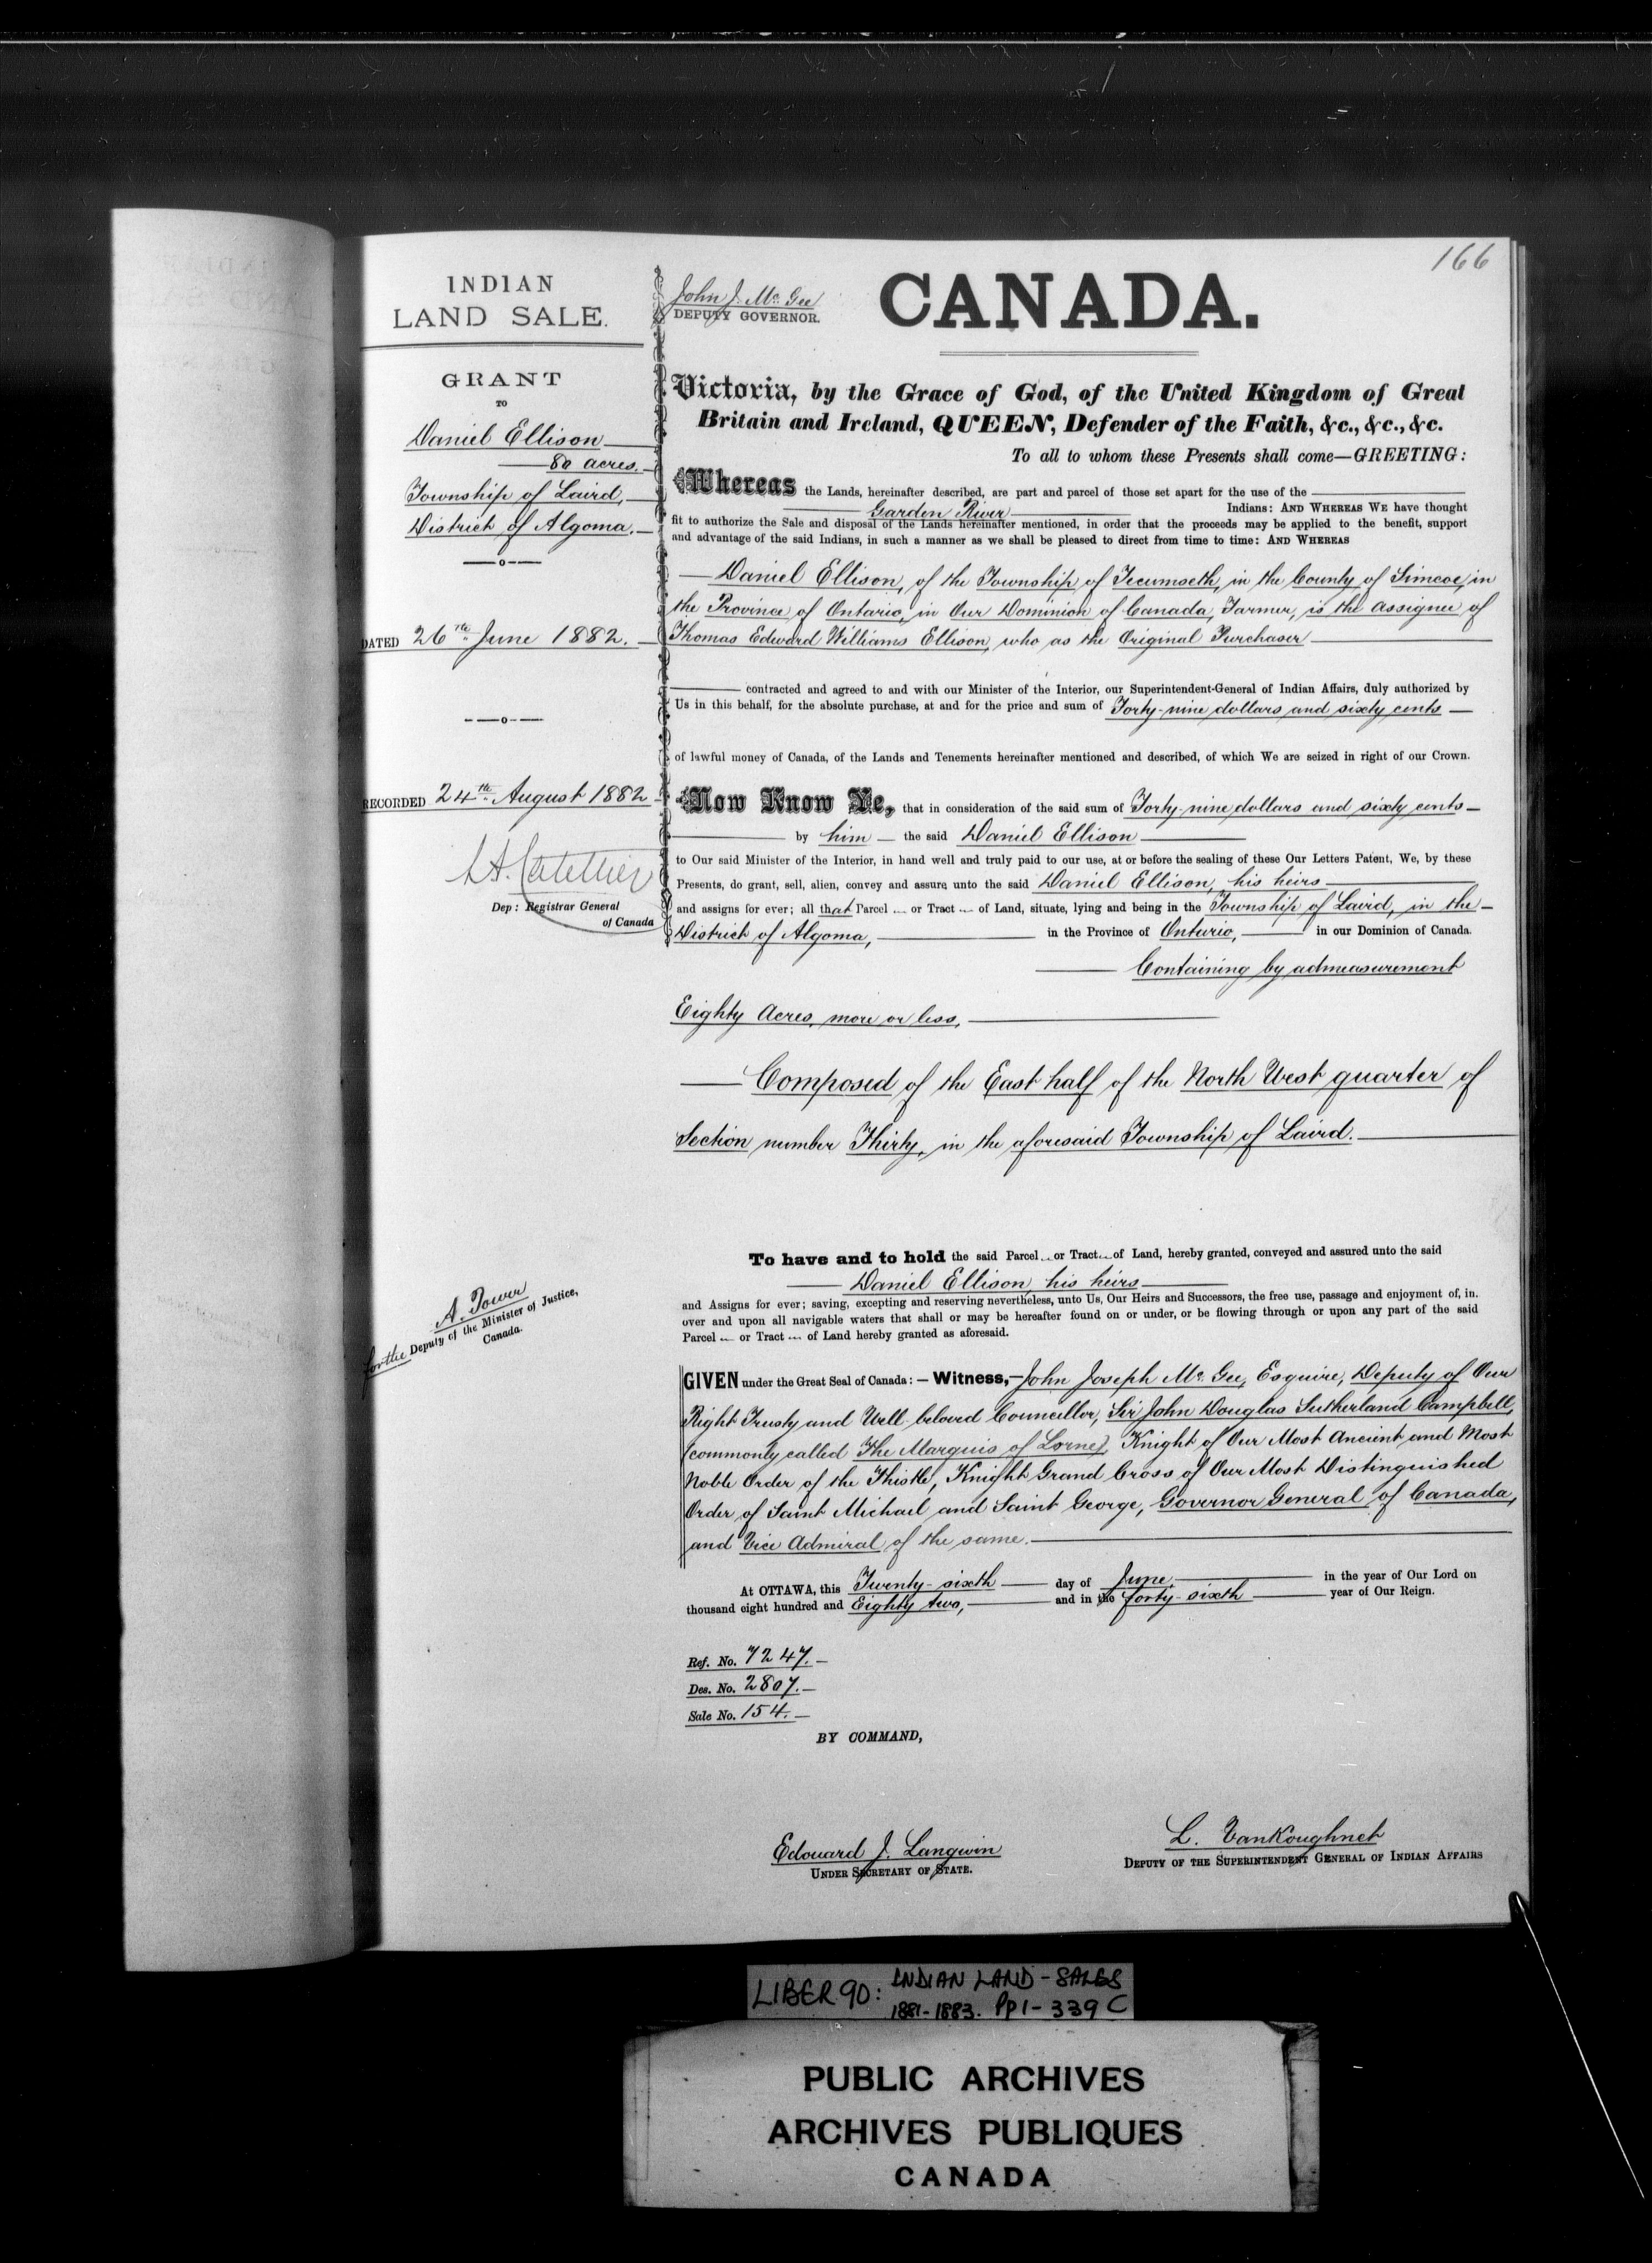 166
INDIAN
LAND SALE.
GRANT
TO
Daniel Ellison
80 acres.
Township of Laird,
District of Algoma.
DATED 26th June 1882.
RECORDED 24th August 1882
Dep: Registrar General
of Canada
A. Power
for the Deputy of the Minister of Justice,
Canada.
John J. Mc Gee
DEPUTY GOVERNOR.
CANADA.
Victoria, by the Grace of God, of the United Kingdom of Great
Britain and Ireland, QUEEN, Defender of the Faith, &c., &c., &c.
To all to whom these Presents shall come—GREETING:
Whereas the Lands, hereinafter described, are part and parcel of those set apart for the use of the
Garden River Indians: AND WHEREAS WE have thought
fit to authorize the Sale and disposal of the Lands hereinafter mentioned, in order that the proceeds may be applied to the benefit, support
and advantage of the said Indians, in such a manner as we shall be pleased to direct from time to time: AND WHEREAS
Daniel Ellison, of the Township of Tecumseth, in the County of Simcoe, in
the Province of Ontario, in Our Dominion of Canada, Farmer, is the Assignee of
Thomas Edward Williams Ellison, who as the Original Purchaser
contracted and agreed to and with our Minister of the Interior, our Superintendent-General of Indian Affairs, duly authorized by
Us in this behalf, for the absolute purchase, at and for the price and sum of Forty-nine dollars and sixty cents
of lawful money of Canada, of the Lands and Tenements hereinafter mentioned and described, of which We are seized in right of our Crown.
Now Know Ye, that in consideration of the said sum of Forty-nine dollars and sixty cents
by him the said Daniel Ellison
to Our said Minister of the Interior, in hand well and truly paid to our use, at or before the sealing of these Our Letters Patent, We, by these
Presents, do grant, sell, alien, convey and assure unto the said Daniel Ellison, his heirs
and assigns for ever; all that Parcel or Tract of Land, situate, lying and being in the Township of Laird, in the
District of Algoma, in the Province of Ontario, in our Dominion of Canada.
Containing by admeasurement
Eighty Acres, more or less,
Composed of the East half of the North West quarter of
Section number Thirty, in the aforesaid Township of Laird.
To have and to hold the said Parcel or Tract of Land, hereby granted, conveyed and assured unto the said
Daniel Ellison, his heirs
and Assigns for ever; saving, excepting and reserving nevertheless, unto Us, Our Heirs and Successors, the free use, passage and enjoyment of, in,
over and upon all navigable waters that shall or may be hereafter found on or under, or be flowing through or upon any part of the said
Parcel or Tract of Land hereby granted as aforesaid.
GIVEN under the Great Seal of Canada:—Witness,—John Joseph Mc Gee, Esquire, Deputy of Our
Right Trusty and Well-beloved Councillor, Sir John Douglas Sutherland Campbell,
(commonly called The Marquis of Lorne), Knight of Our Most Ancient and Most
Noble Order of the Thistle, Knight Grand Cross of Our Most Distinguished
Order of Saint Michael and Saint George, Governor General of Canada,
and Vice Admiral of the same.
At OTTAWA, this Twenty-sixth day of June, in the year of Our Lord on
thousand eight hundred and Eighty two, and in the forty-sixth year of Our Reign.
Ref. No. 7247.
Des. No. 2807.
Sale No. 154.
BY COMMAND,
Edouard J. Langevin
UNDER SECRETARY OF STATE.
L. VanKoughnet
DEPUTY OF THE SUPERINTENDENT GENERAL OF INDIAN AFFAIRS
LIBER 90: INDIAN LAND-SALES
1881-1883. Pp 1-339 C
PUBLIC ARCHIVES
ARCHIVES PUBLIQUES
CANADA